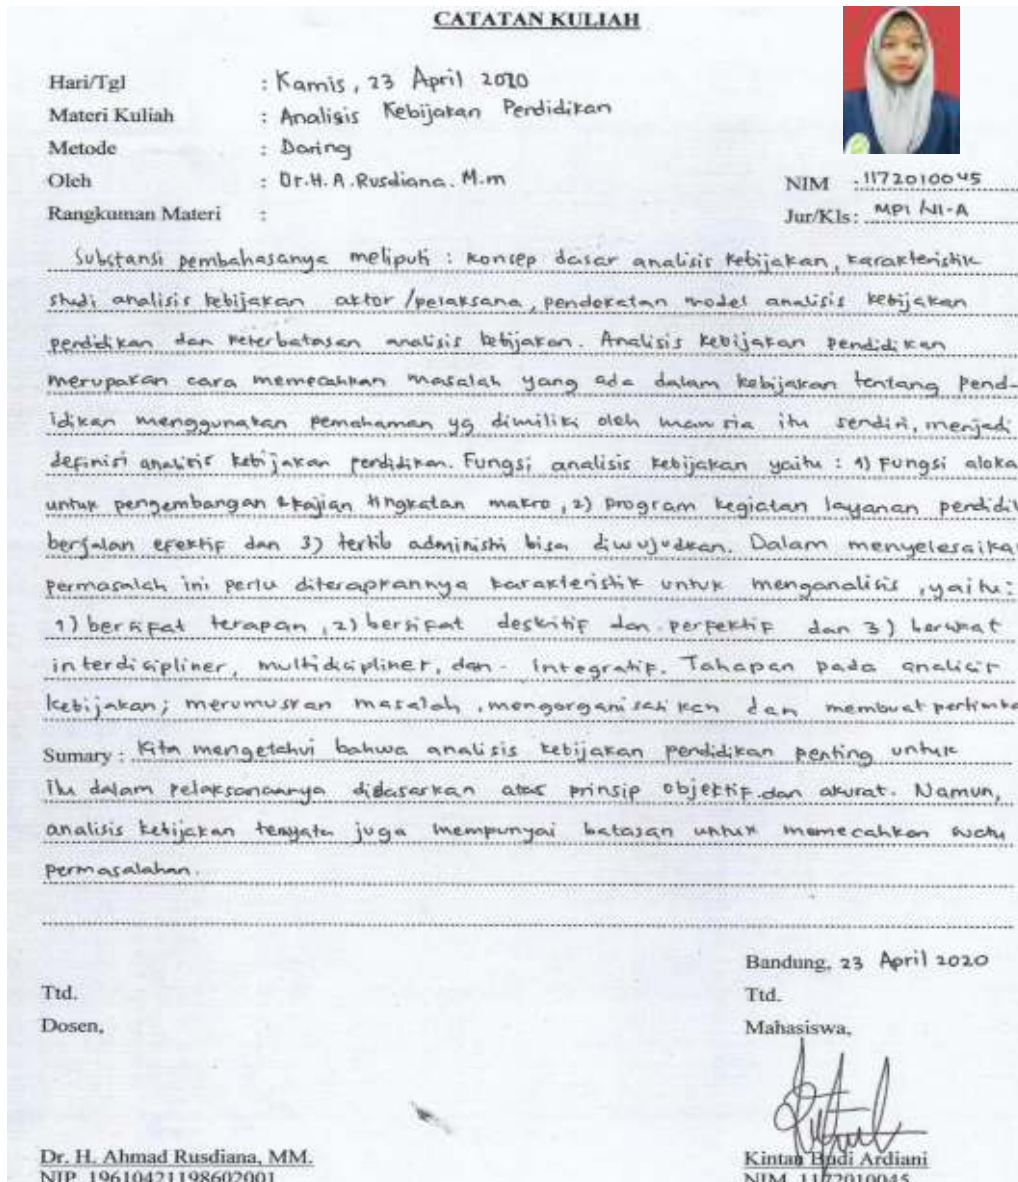 CATATAN KULIAH
Hari/Tgl : Kamis, 23 April 2020
Materi Kuliah : Analisis Kebijakan Pendidikan
Metode : Daring
Oleh : Dr.H.A.Rusdiana. M.m
NIM : 1172010045
Rangkuman Materi :
Jur/Kls : MPI /VI-A
Substansi pembahasanya meliputi : konsep dasar analisis kebijakan, karakteristik
studi analisis kebijakan aktor /pelaksana, pendekatan model analisis kebijakan
pendidikan dan keterbatasan analisis kebijakan. Analisis kebijakan pendidikan
merupakan cara memecahkan masalah yang ada dalam kebijakan tentang pend-
idikan menggunakan pemahaman yg dimiliki oleh manusia itu sendiri, menjadi
definisi analisis kebijakan pendidikan. Fungsi analisis kebijakan yaitu : 1) Fungsi aloka
untuk pengembangan & kajian tingkatan makro, 2) program kegiatan layanan pendidik
berjalan efektif dan 3) tertib administi bisa diwujudkan. Dalam menyelesaikan
permasalah ini perlu diterapkannya karakteristik untuk menganalisis, yaitu:
1) bersifat terapan, 2) bersifat deskitif dan perfektif dan 3) bersifat
interdisipliner, multidisipliner, dan - Integratif. Tahapan pada analisis
kebijakan; merumuskan masalah, mengorganisasikan dan membuat pertimba
Sumary : Kita mengetahui bahwa analisis kebijakan pendidikan penting untuk
itu dalam pelaksanaanya didasarkan atas prinsip objektif dan akurat. Namun,
analisis kebijakan ternyata juga mempunyai batasan untuk memecahkan suatu
permasalahan.
Bandung, 23 April 2020
Ttd. Ttd.
Dosen, Mahasiswa,
Dr. H. Ahmad Rusdiana, MM. Kintan Budi Ardiani
NIP. 19610421198602001 NIM. 1172010045